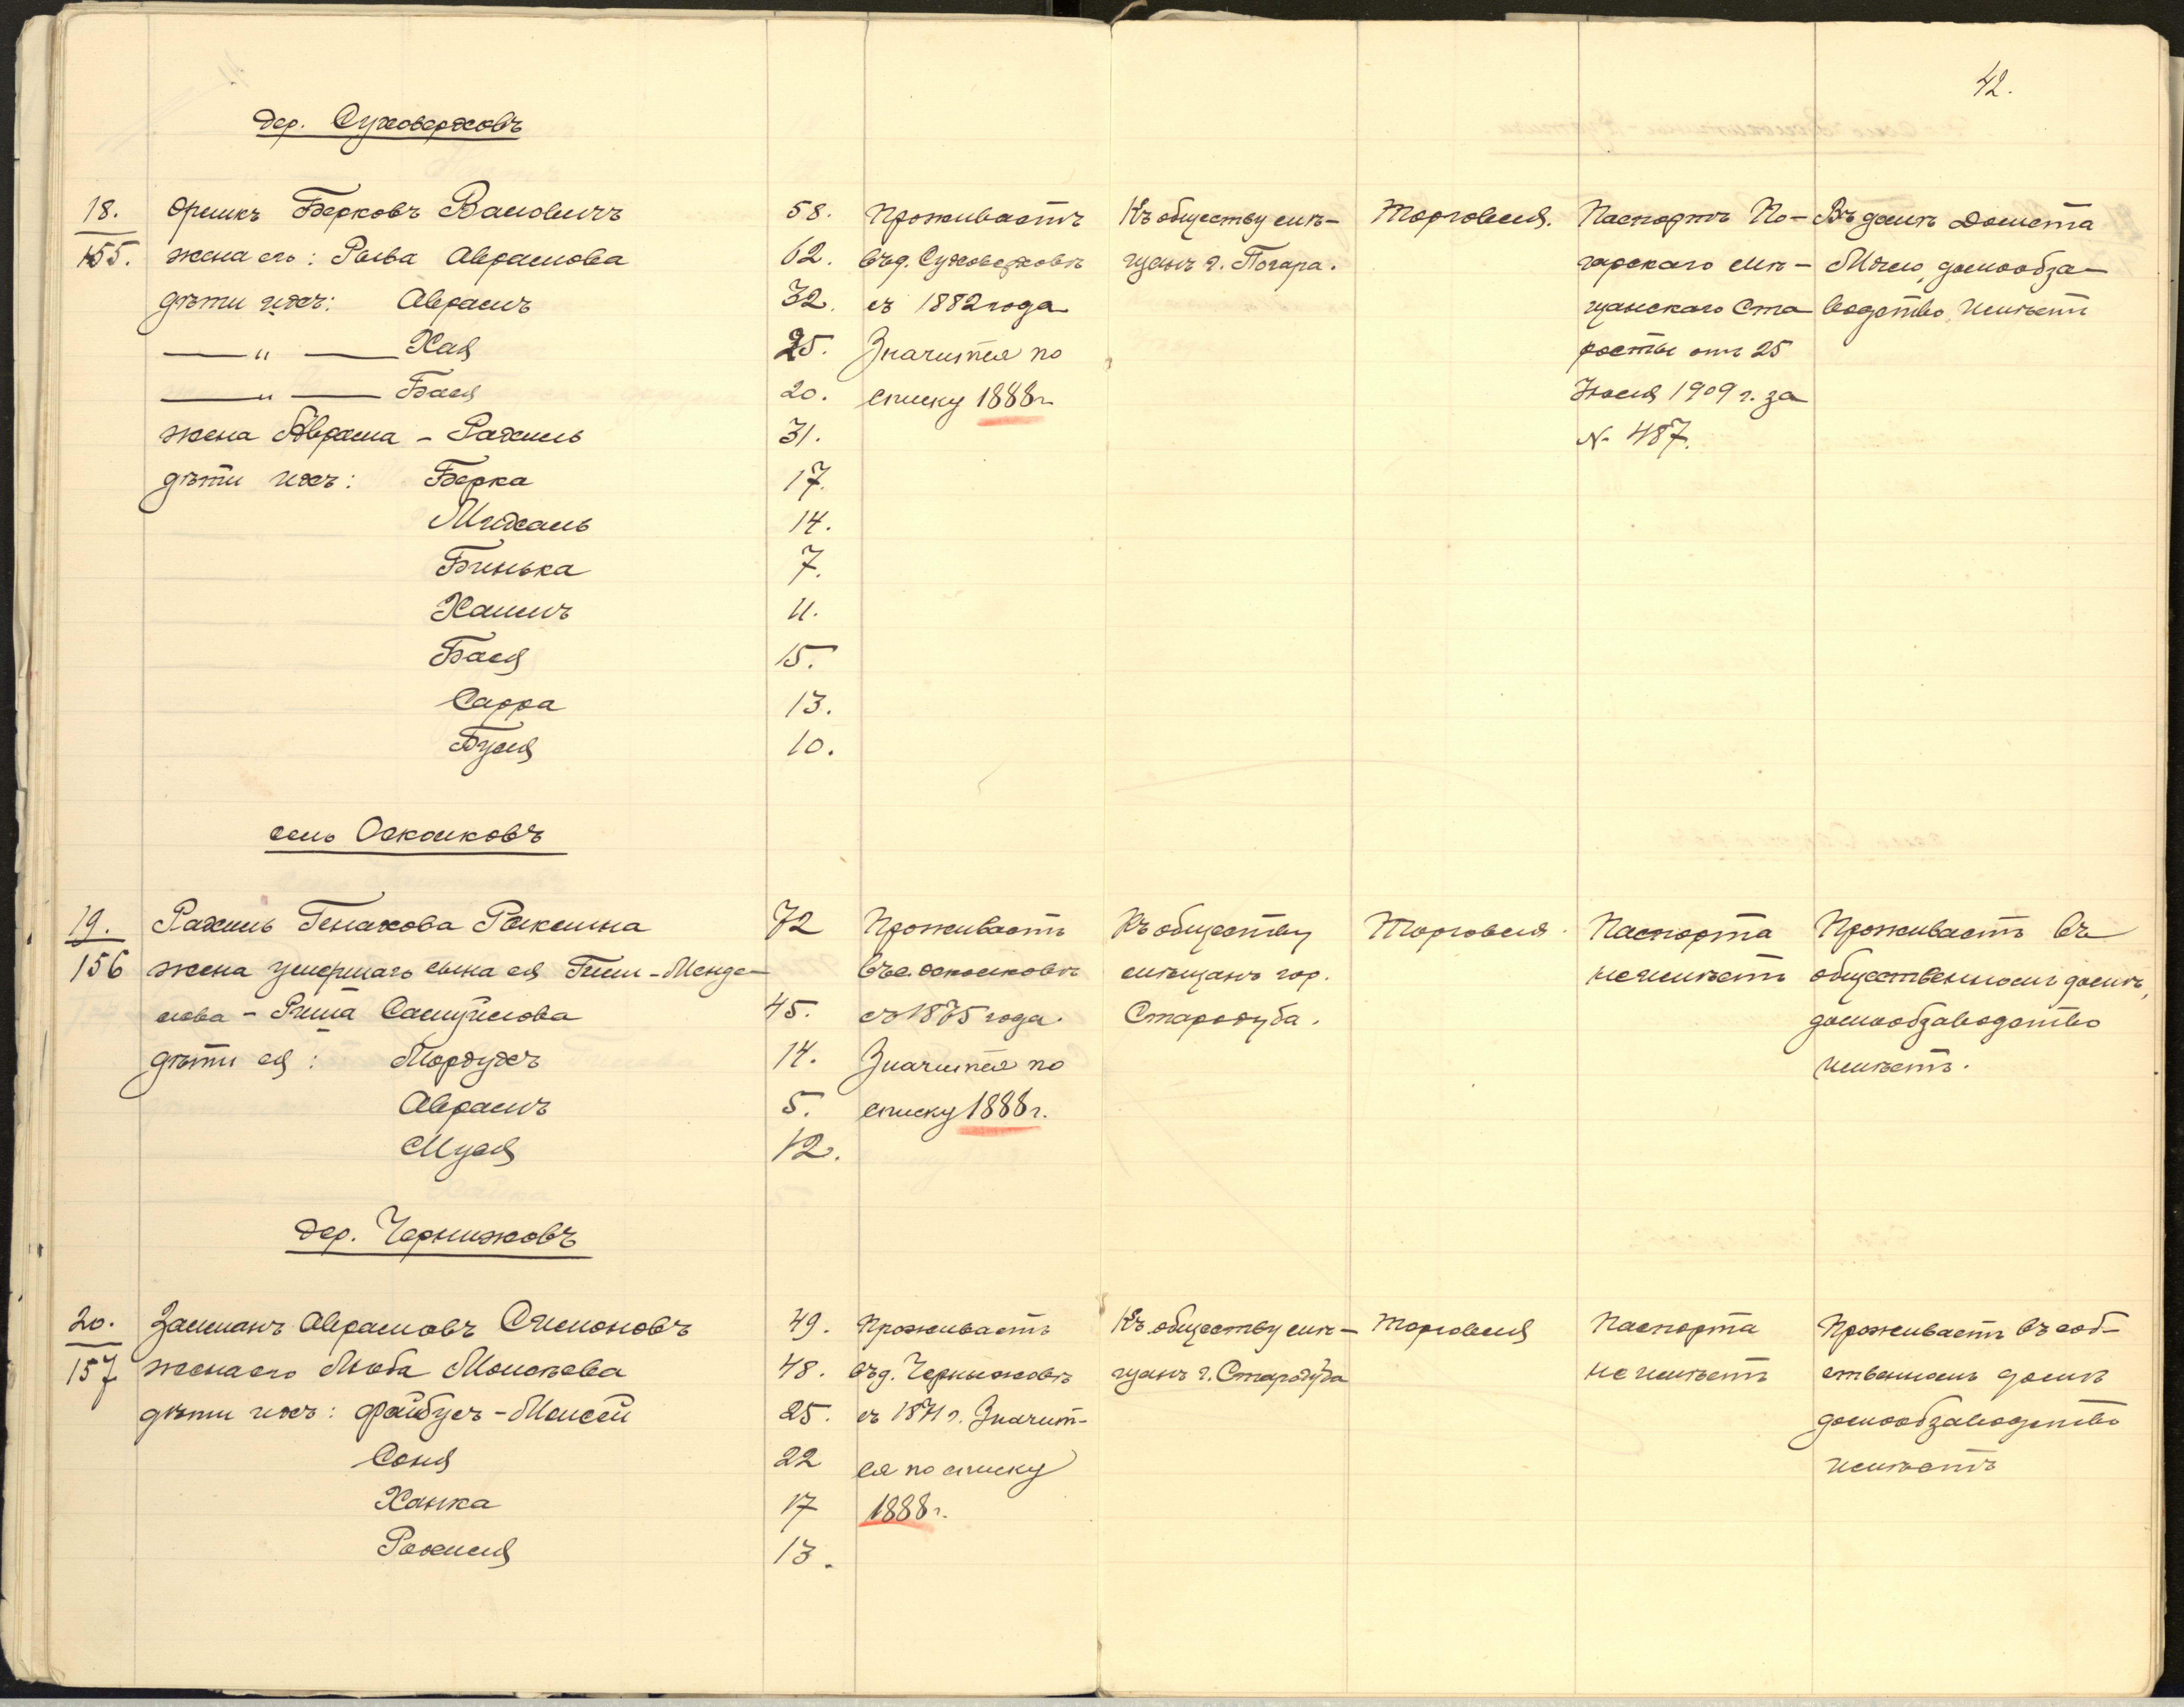 42.
дер. Суховерховъ
18.
155.
Оршикъ Берковъ
жена его: Рыва Абрамова
дѣти ихъ: Абрамъ
—"— Хая
—"— Бася
жена Абрама - Рахиль
дѣти ихъ: Берка
Михаль
Бинька
Хаимъ
Бася
Сарра
Буся
58.
62.
32.
25.
20.
31.
17.
14.
7.
11.
15.
13.
10.
Проживаетъ
въ д. Суховерховѣ
съ 1882 года
Значится по
списку 1888 г.
Къ обществу мѣ-
щанъ г. Погара.
Торговля.
Паспортъ По-
гарскаго мѣ-
щанскаго Ста
росты отъ 25
Іюля 1909 г. за
№ 487.
Въ домѣ
домообза-
водство имѣетъ
село Осколковъ
19.
156
Рахиль Генахова
жена умершаго сына ея -Менде-
лова - Рита Самуйлова
дѣти ея: Мордухъ
Абрамъ
Муся
72
45.
14.
5.
12.
Проживаетъ
въ с. Осколковѣ
съ 1875 года.
Значится по
списку 1888 г.
Къ обществу
мѣщанъ гор.
Стародуба.
Торговля.
Паспорта
не имѣетъ
Проживаетъ въ
общественномъ домѣ,
домообзаводство
имѣетъ.
дер. Чернижовъ
20.
157
Залманъ Абрамовъ Симоновъ
жена его Люба Моисеева
дѣти ихъ: Файбусъ-Моисей
Соня
Ханка
Рахиля
49.
48.
25.
22
17
13.
Проживаетъ
въ д. Чернижовѣ
съ 1871 г. Значит-
ся по списку
1888 г.
Къ обществу мѣ-
щанъ г. Стародуба
Торговля
Паспорта
не имѣетъ
Проживаетъ въ соб-
ственномъ домѣ
домообзаводство
имѣетъ